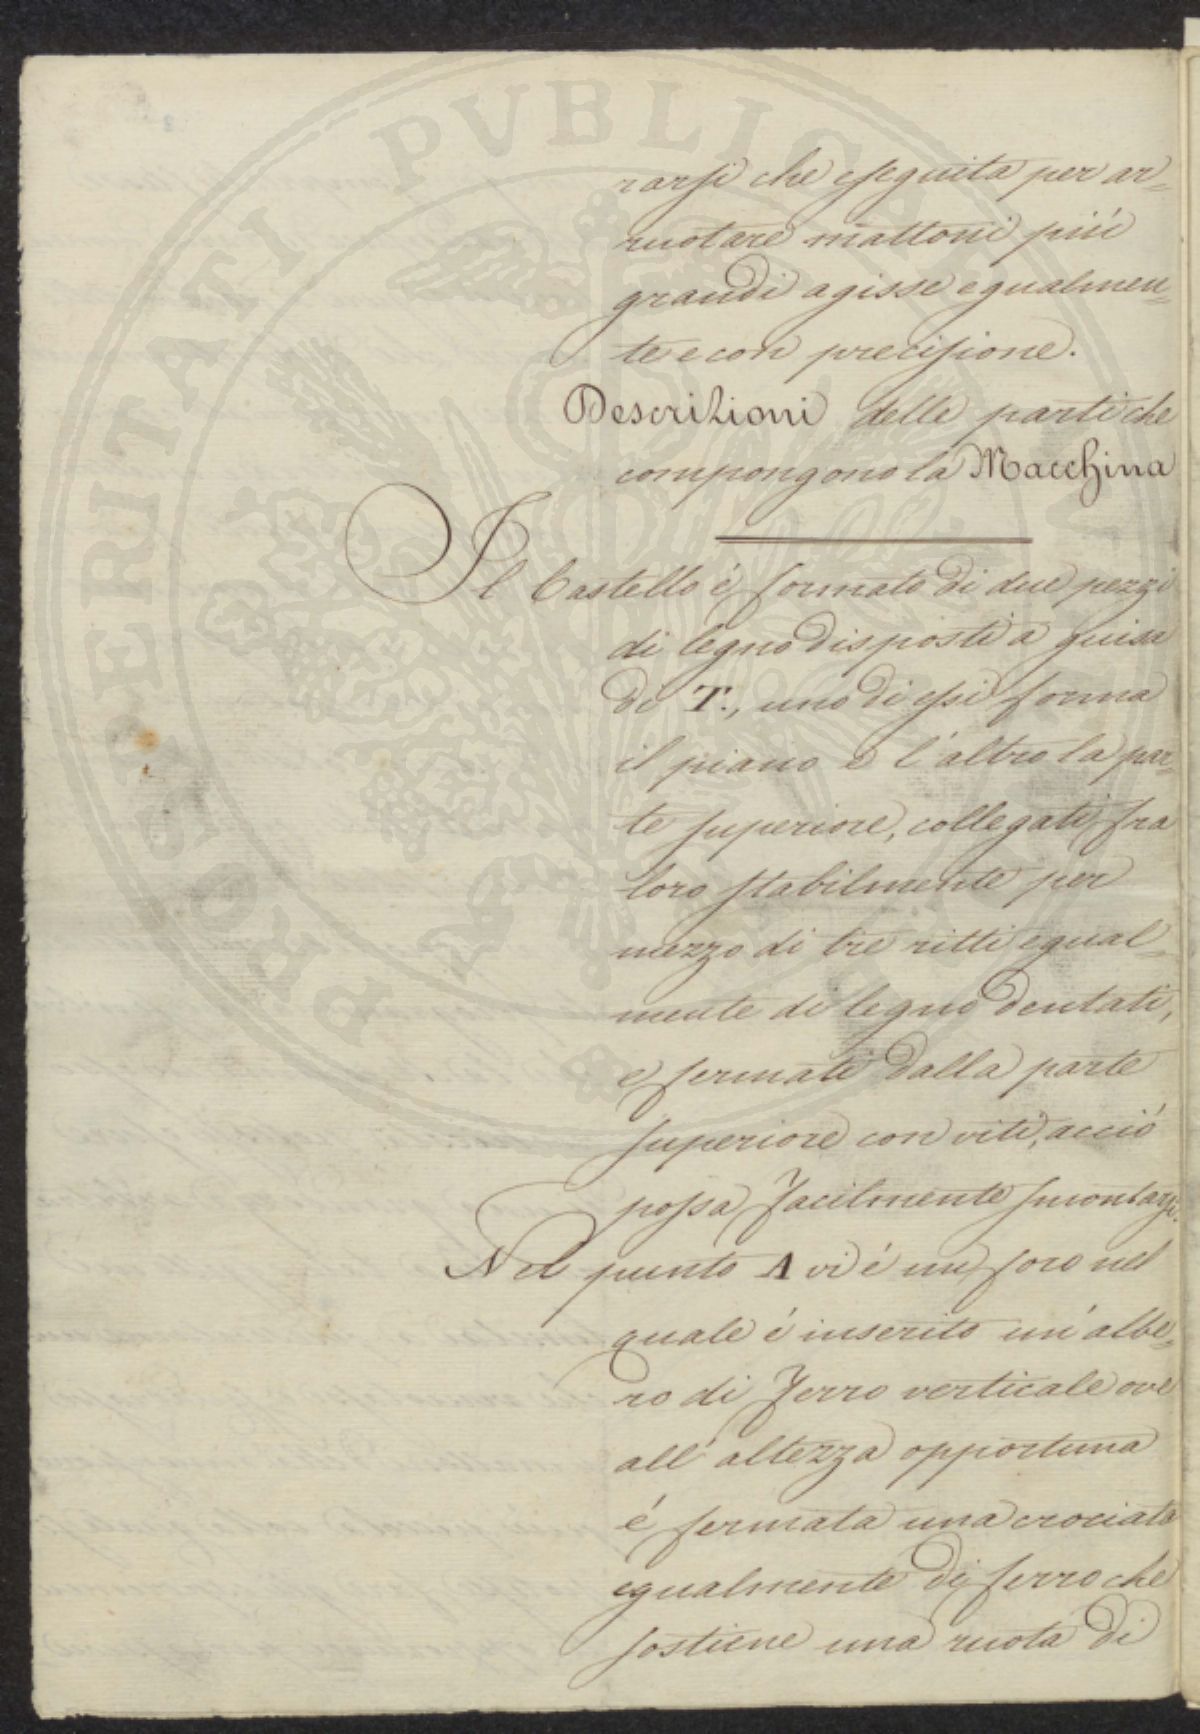 rarsi che eseguita per ar=
ruotare mattoni più
grandi agisse egualmen=
te e con precisione.
Descrizioni delle parti che
compongono la Macchina
Il Castello é formato di due pezzi
di legno disposti a guisa
di T., uno di essi forma
il piano e l'altro la par=
te superiore, collegati fra
loro stabilmente per
mezzo di tre ritti egual=
mente di legno dentati,
e fermati dalla parte
superiore con viti, acció
possa facilmente smontarsi.
Nel punto A vi é un foro nel
quale é inserito un'albe=
ro di ferro verticale ove
all'altezza opportuna
é fermata una crociata
egualmente di ferro che
sostiene una ruota di
PROSPERITATI PVBLICAE